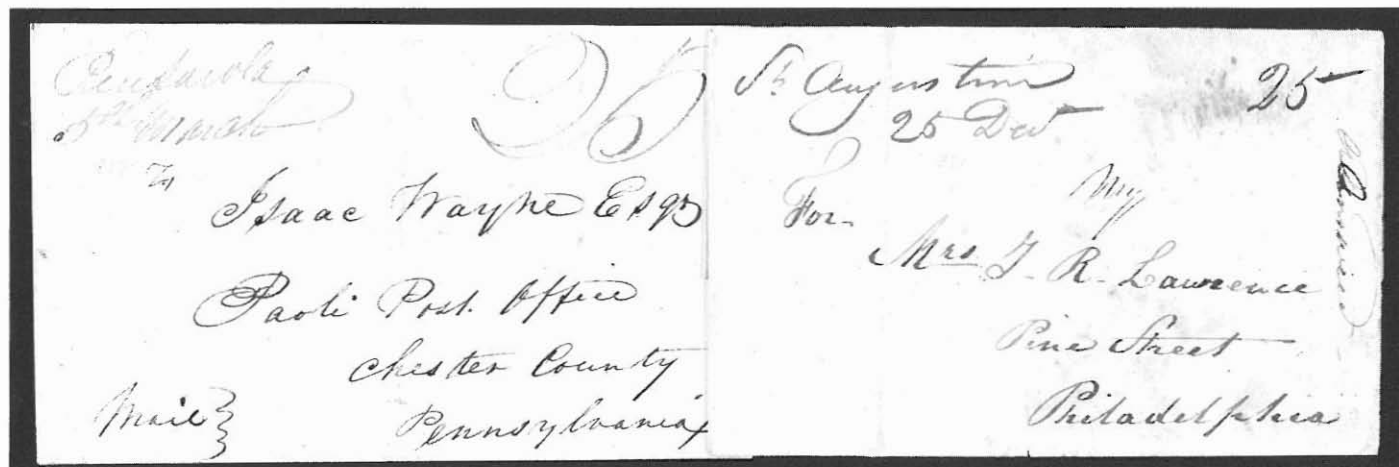 Pensacola
5th March
25
To
Isaac Wayne Esqr
Paoli Post Office
Chester County
Mail }
Pennsylvania
St Augustine
25
25 Decr
For
Mrs T. R. Lawrence
Pine Street
Philadelphia